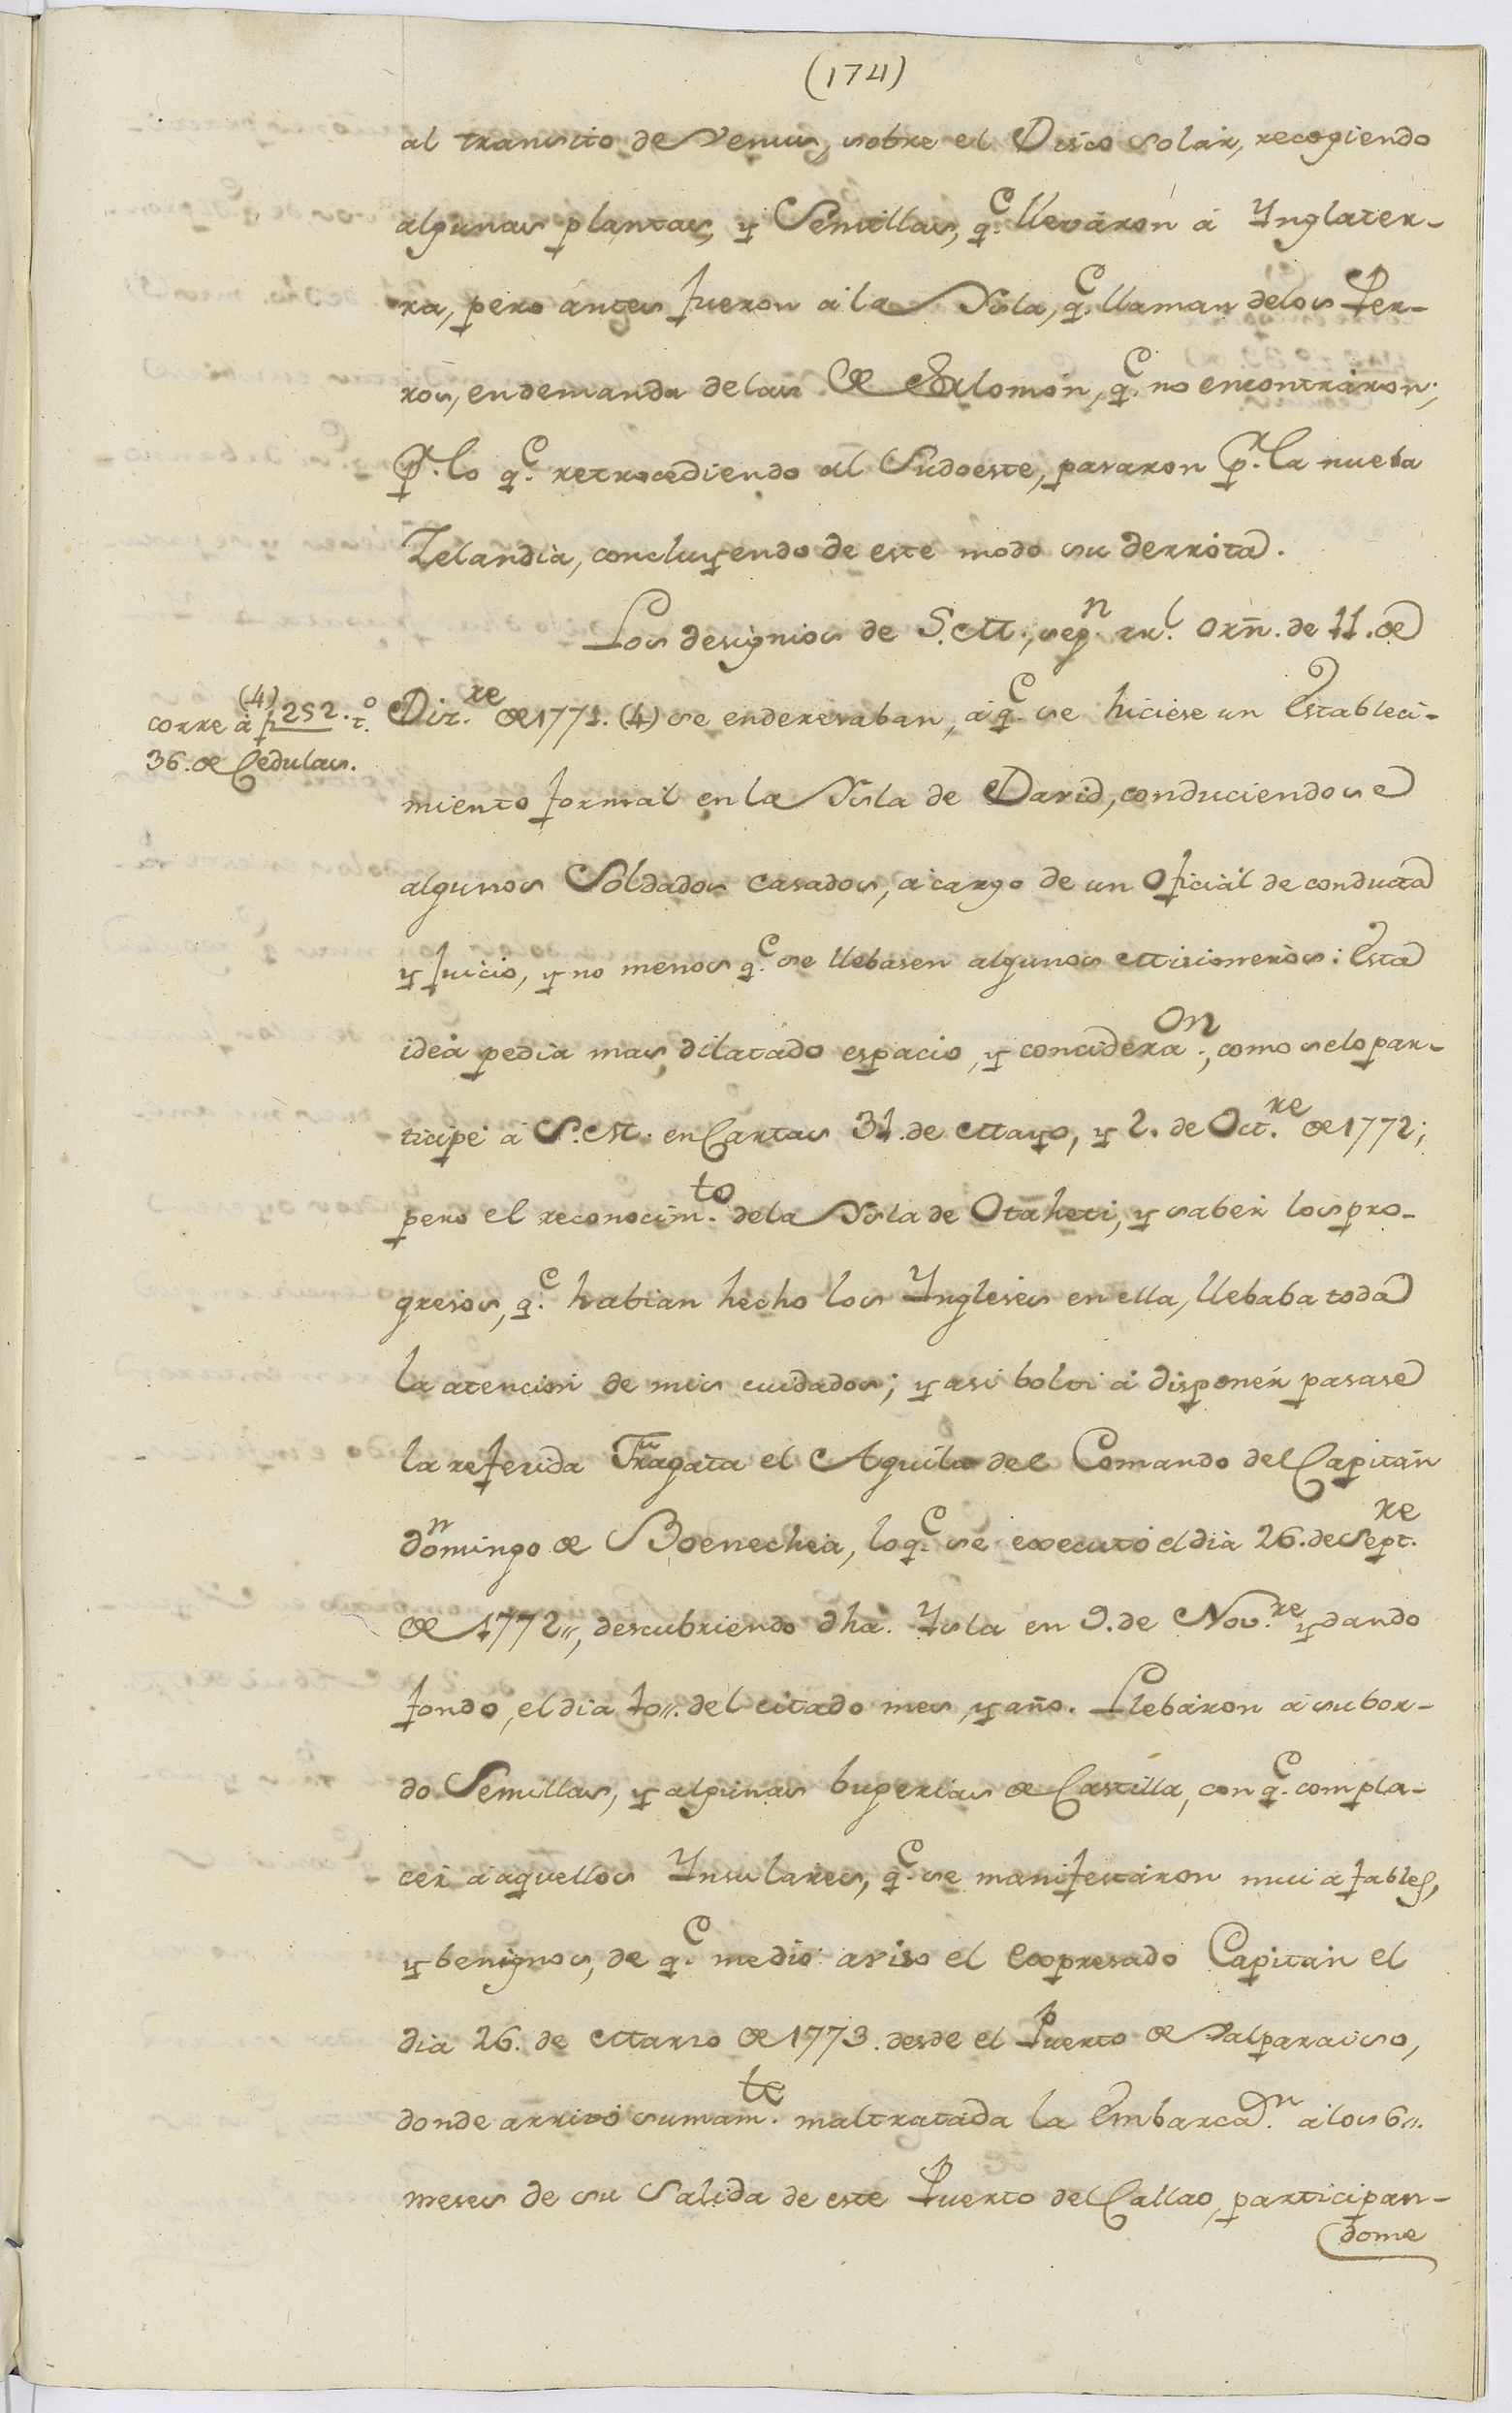 (174)
al transito de Venus, sobre el Disco Solar, recogiendo
algunas plantas, y Semillas, q.e lleváron á Ynglater-
ra, pero ántes fueron á la Ysla, q.e llaman delos Per-
ros, en demanda delas de Salomón, q.e no encontráron;
p.r lo q.e retrocediendo al Sudoeste, pasaron p.r la nueba
Zelandia, concluyendo de este modo su derrota.
Los designios de S. M., seg.n rl. orñ. de 11. de
Diz.re de 1771. (4) se enderesaban, á q.e se hiciese un Estableci-
(4)
corre á f 252. t.o
36. de Cedulas.
miento formal en la Ysla de David, conduciendose
algunos Soldados casados, á cargo de un Oficial de conducta
y Juicio, y no menos q.e se llebasen algunos Misioneros: Esta
idea pedia mas dilatado espacio, y considera.on, como selo par-
ticipé á S. M. en Cartas 31. de Mayo, y 2. de Oct.re de 1772;
pero el reconocim.to dela Ysla de Otaheti, y saber los pro-
gresos, q.e habian hecho los Yngleses en ella, llebaba toda
la atencion de mis cuidados; y asi bolvi á disponér pasase
la referida Fragata el Aguila del Comando del Capitán
dn. domingo de Boenechea, lo q.e se executó el dia 26. de Sept.re
de 1772,, descubriendo dha. Ysla en 9. de Nov.re y dando
fondo, el dia 10,, del citado mes, y año. Llebáron á su bor-
do Semillas, y algunas bugerias de Castilla, con q.e compla-
cér á aquellos Ynsulares, q.e se manifestáron mui afables,
y benignos, de q.e medió aviso el expresado Capitán el
dia 26. de Marzo de 1773. desde el Puerto de Valparaiso,
donde arrivó sumam.te maltratada la Embarca.on á los 6,,
meses de su Salida de este Puerto del Callao, participan-
dome